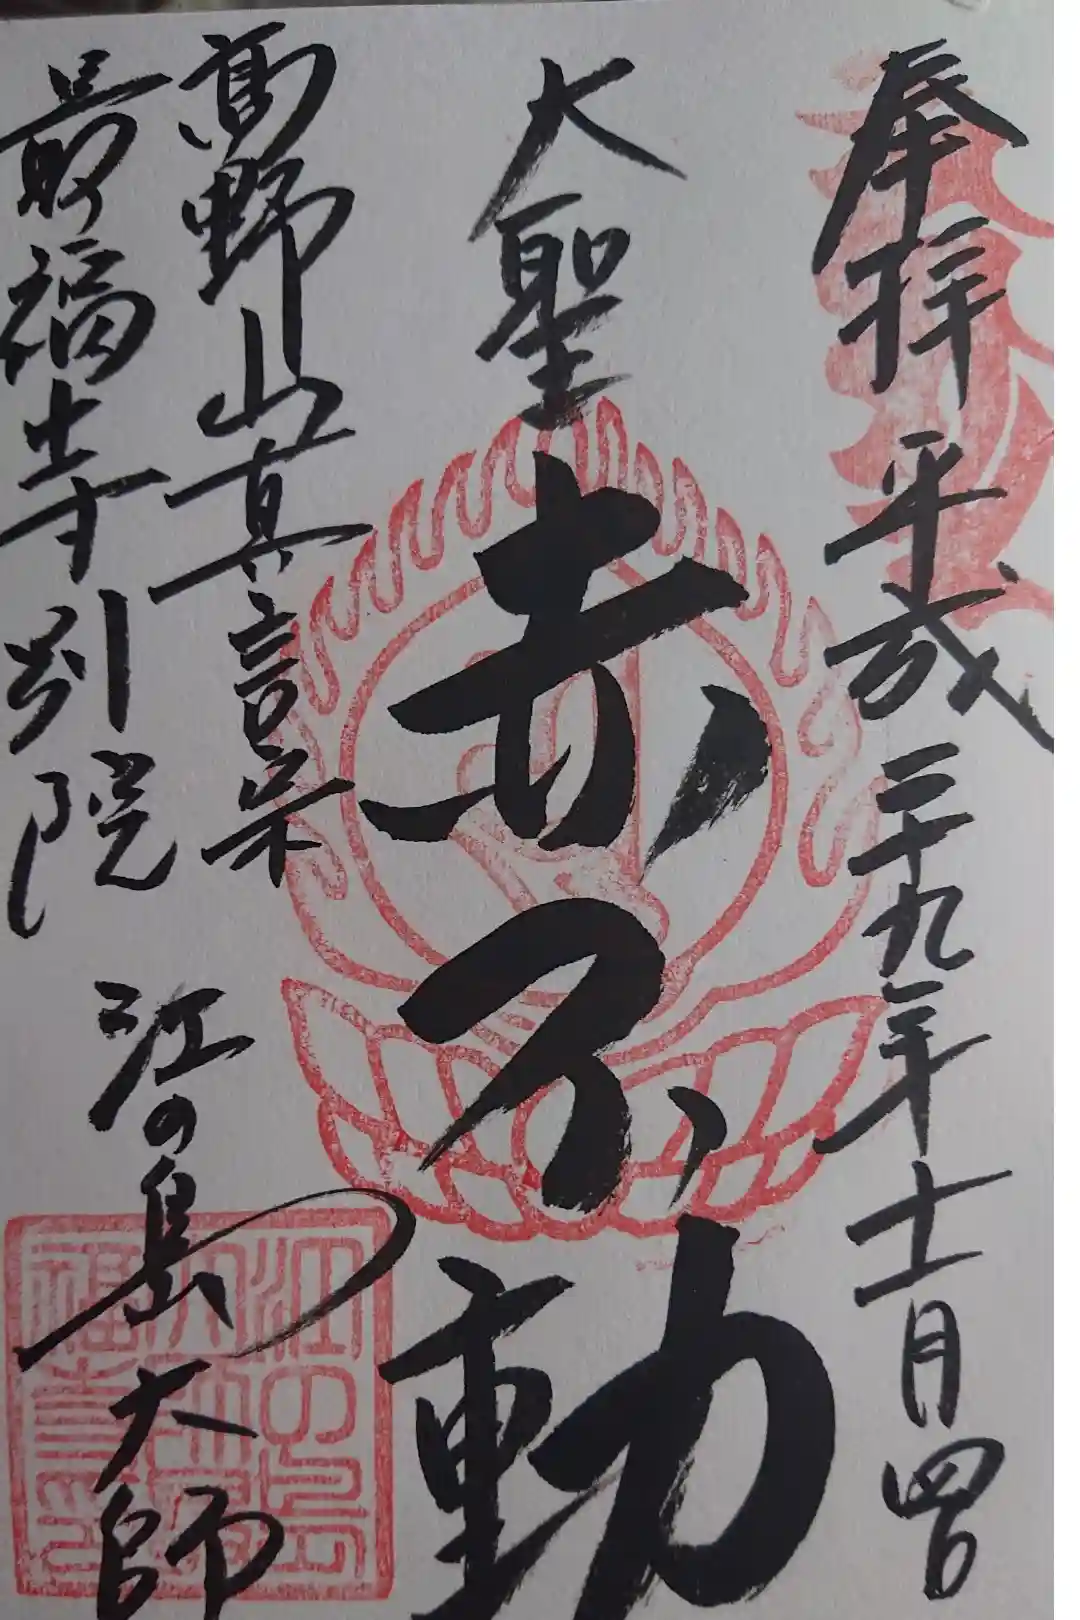 奉拝 平成二十九年十一月四日
大聖 赤不動
高野山真言宗
最福寺別院 江の島大師